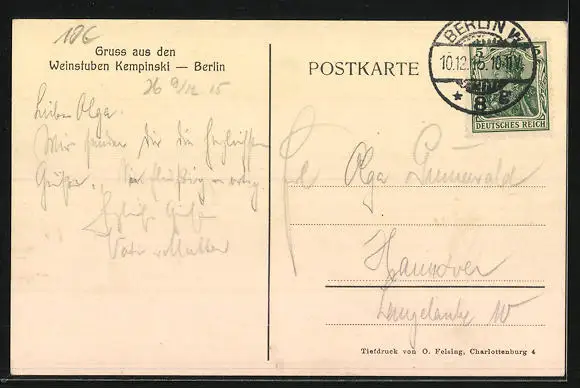 18c
Gruss aus den
Weinstuben Kempinski — Berlin
9/12 15
Liebe Olga.
Wir senden dir die herzlichsten
Grüße.
Herzliche Grüße
Vater u Mutter
POSTKARTE
BERLIN W
10.12.15.10-11V.
* 8
5
DEUTSCHES REICH
Olga Grunewald
Hannover
Tiefdruck von O. Felsing, Charlottenburg 4